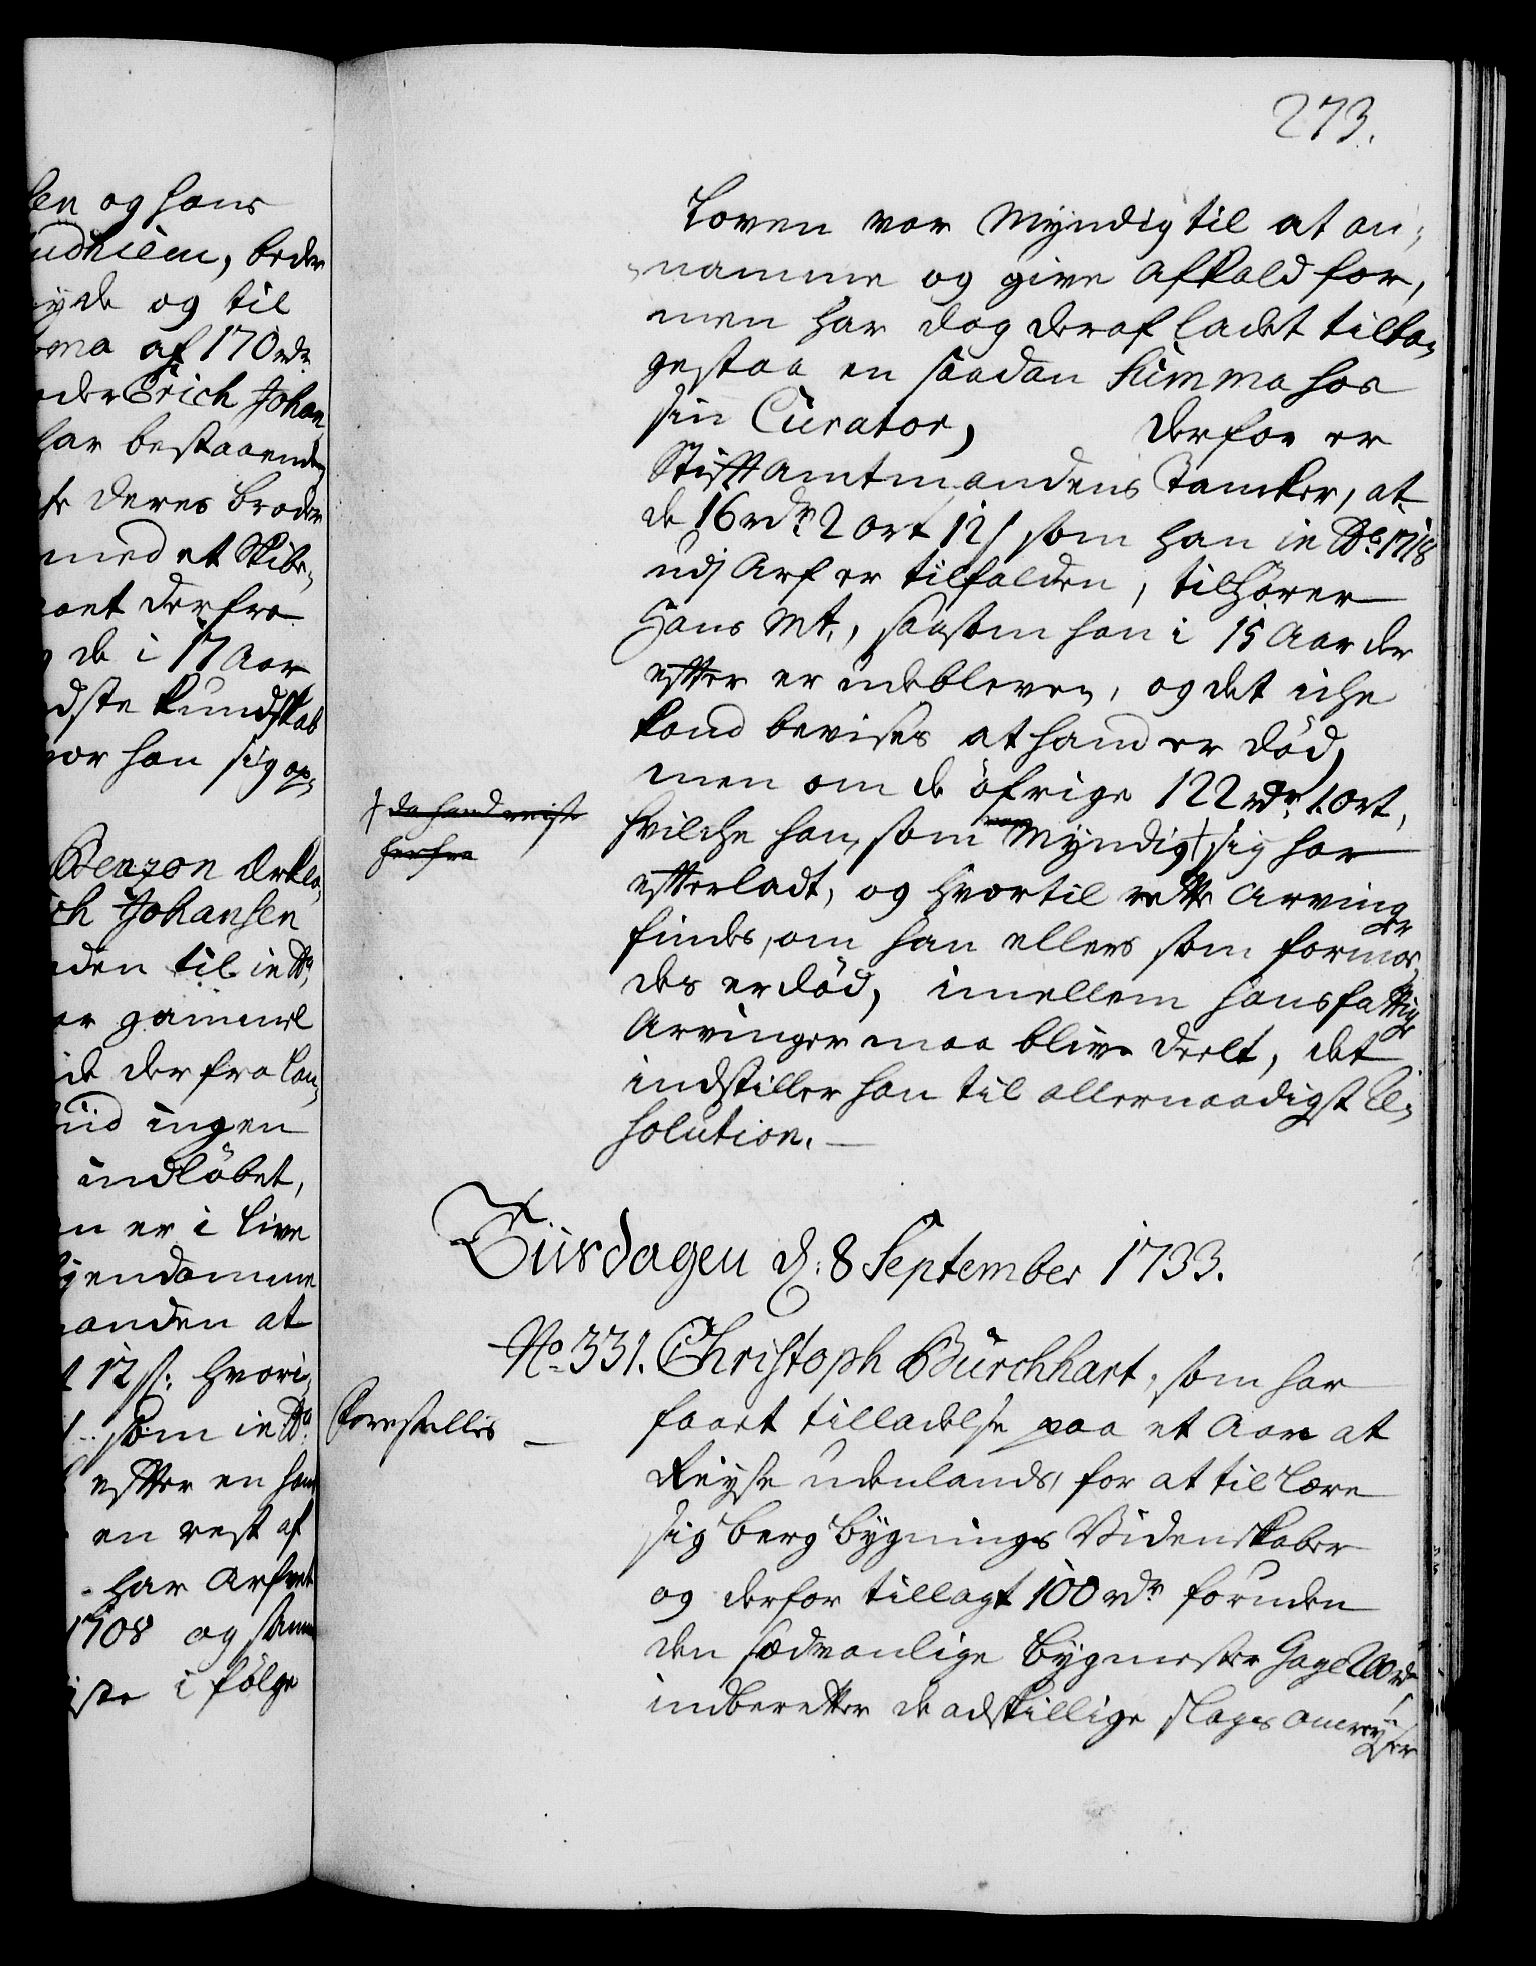 273.
len og hans
udhiem, beder
yde og til
ma af 170 rdr.
der Erich Johan
har bestaaende
deres broder
med et Skibe,
derfra
de i 17 Aar
dste kundskab
vor han sig op,
Benzon Erklæ,
ch Johansen
den til in Ao,
er gammel
de derfra lan,
tiid ingen
indløbet,
n er i live
yendomme
anden at
12 s: hvori,
som in Ao
efter en
en rest af
har Arfvet
1708 og
iste i følge
Loven var Myndig til at an,
namme og give afkald for,
men har dog deraf ladet tilba,
gestaa en saadan Summa hos
sin Curator, Derfor er
StiftAmtmandens Tancker, at
de 16 rdr. 2 ort 12 s som han in Ao 1718
udj Arf er tilfalden, tilhører
Hans Mt., saasom han i 15 Aar der
efter er udebleven, og det iche
kand bevises at hand er død,
men om de öfrige 122 rdr. 1. ort,
† da hand reiste
herfra
hvilche han, som Myndig † sig har
efterladt, og hvortil rette Arvinger
findes, om han ellers som formo,
des er død, imellem hans fattige
Arvinger maa blive deelt, det
indstiller han til allernaadigst Re,
solution. —
Tiisdagen d: 8 September 1733.
No 331. Christoph Bürchhart, som har
Forestilles —
faaet tilladelse paa et Aar at
Reyse udenlands, for at til lære
sig berg bygnings Videnskaber
og derfor tillagt 100 rdr foruden
den sædvanlige bygmester Gage 200 rdr,
indberetter de adskillige slags